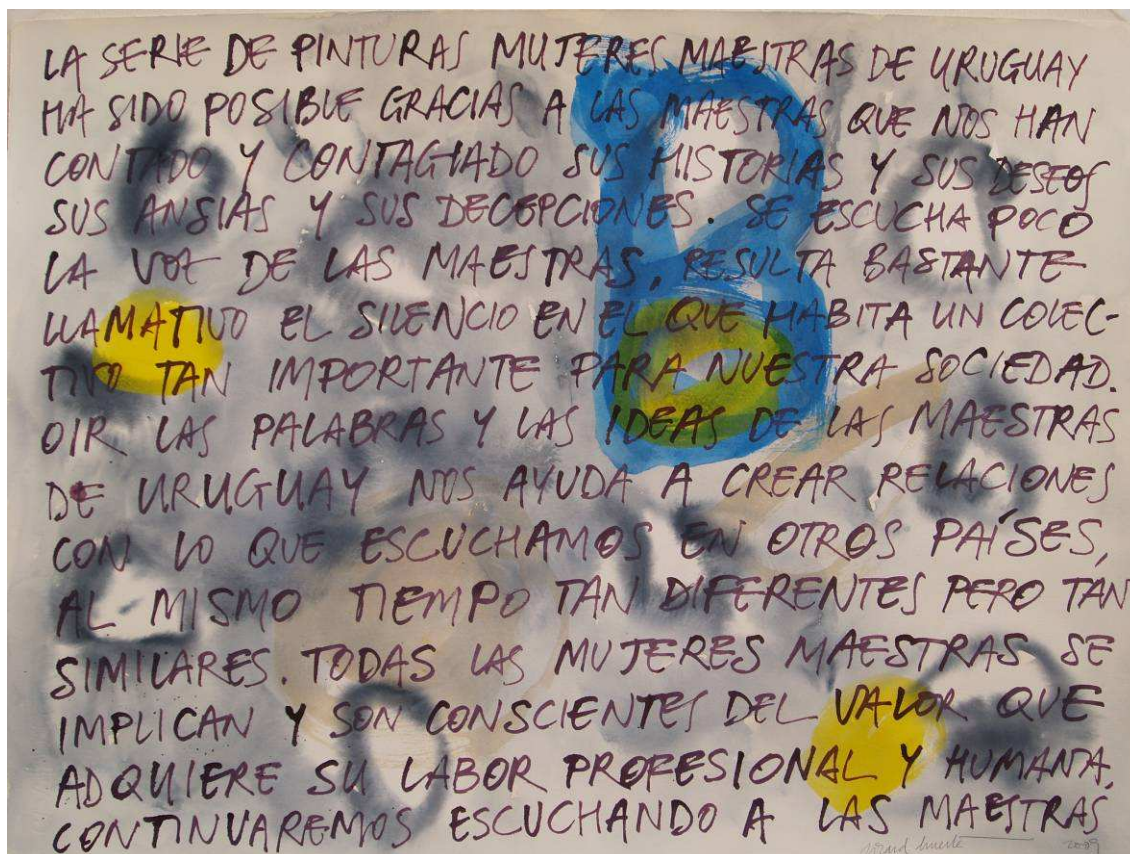 LA SERIE DE PINTURAS MUJERES MAESTRAS DE URUGUAY
HA SIDO POSIBLE GRACIAS A LAS MAESTRAS QUE NOS HAN
CONTADO Y CONTAGIADO SUS HISTORIAS Y SUS DESEOS
SUS ANSIAS Y SUS DECEPCIONES. SE ESCUCHA POCO
LA VOZ DE LAS MAESTRAS, RESULTA BASTANTE
LLAMATIVO EL SILENCIO EN EL QUE HABITA UN COLEC-
TIVO TAN IMPORTANTE PARA NUESTRA SOCIEDAD.
OIR LAS PALABRAS Y LAS IDEAS DE LAS MAESTRAS
DE URUGUAY NOS AYUDA A CREAR RELACIONES
CON LO QUE ESCUCHAMOS EN OTROS PAÍSES,
AL MISMO TIEMPO TAN DIFERENTES PERO TAN
SIMILARES. TODAS LAS MUJERES MAESTRAS SE
IMPLICAN Y SON CONSCIENTES DEL VALOR QUE
ADQUIERE SU LABOR PROFESIONAL Y HUMANA.
CONTINUAREMOS ESCUCHANDO A LAS MAESTRAS